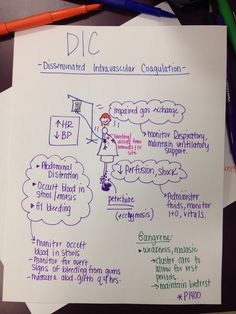 DIC
- Disseminated Intravascular Coagulation -
Impaired gas exchange
↑ HR
↓ BP
monitor Respiratory,
maintain ventilatory
support.
Abdominal
Distention
Occult blood in
stool/emesis
GI bleeding
↓ Perfusion, Shock
petechiae
(ecchymosis)
Administer
fluids, monitor
I+O, vitals.
monitor occult
blood in stools
monitor for overt
signs of bleeding from gums
measure abd. girth q4hrs.
Gangrene:
weakness, malaise
cluster care to
allow for rest
periods.
maintain bedrest